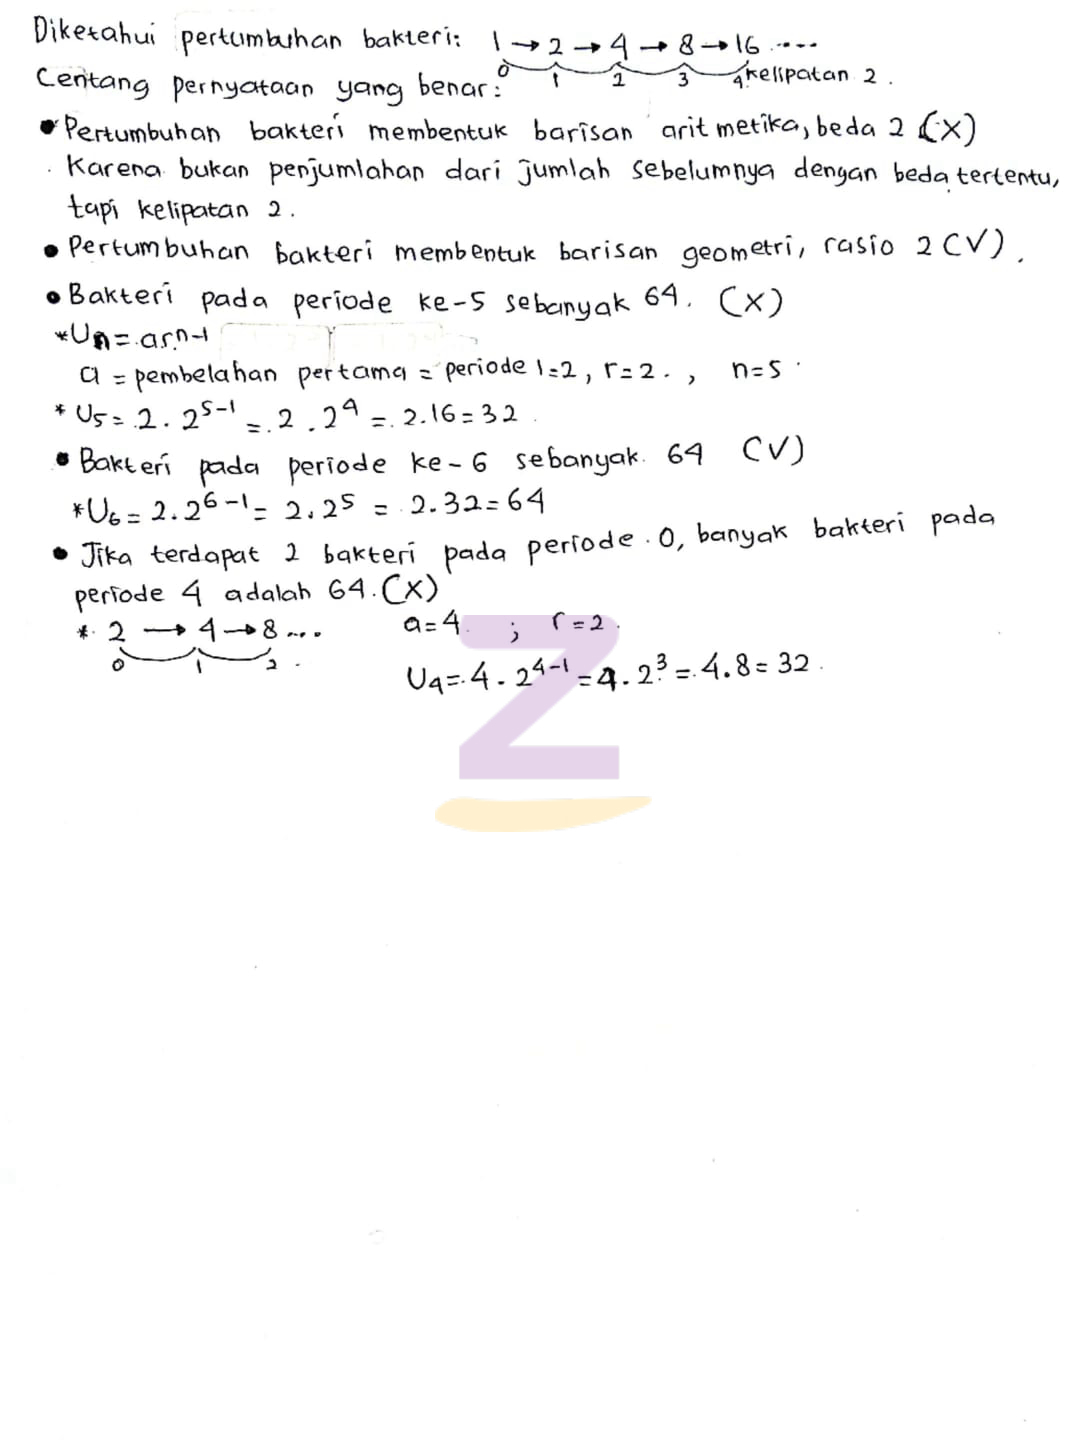 Diketahui pertumbuhan bakteri: 1 → 2 → 4 → 8 → 16 ....
0 1 2 3 4 kelipatan 2.
Centang pernyataan yang benar:
• Pertumbuhan bakteri membentuk barisan aritmetika, beda 2 (X)
Karena bukan penjumlahan dari jumlah sebelumnya dengan beda tertentu,
tapi kelipatan 2.
• Pertumbuhan bakteri membentuk barisan geometri, rasio 2 (V).
• Bakteri pada periode ke-5 sebanyak 64. (X)
*Un = arⁿ⁻¹
a = pembelahan pertama = periode 1 = 2, r = 2, n = 5
* U5 = 2 . 2⁵⁻¹ = 2 . 2⁴ = 2.16 = 32
• Bakteri pada periode ke-6 sebanyak 64 (V)
*U6 = 2.2⁶⁻¹ = 2.2⁵ = 2.32 = 64
• Jika terdapat 2 bakteri pada periode 0, banyak bakteri pada
periode 4 adalah 64. (X)
* 2 → 4 → 8 .... a = 4 ; r = 2
0 1 2
U4 = 4 . 2⁴⁻¹ = 4 . 2³ = 4.8 = 32
Z